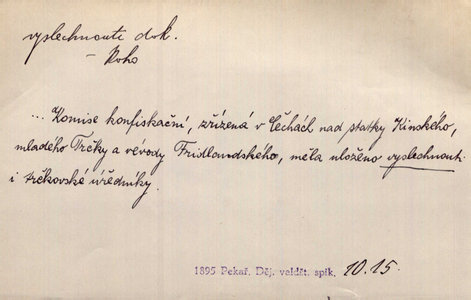 vyslechnouti dok.
– koho
... Komise konfiskační, zřízená v Čechách nad statky Kinského,
mladého Trčky a vévody Fridlandského, měla uloženo vyslechnouti
i trčkovské úředníky.
1895 Pekař, Děj. valdšt. spik. 10.15.